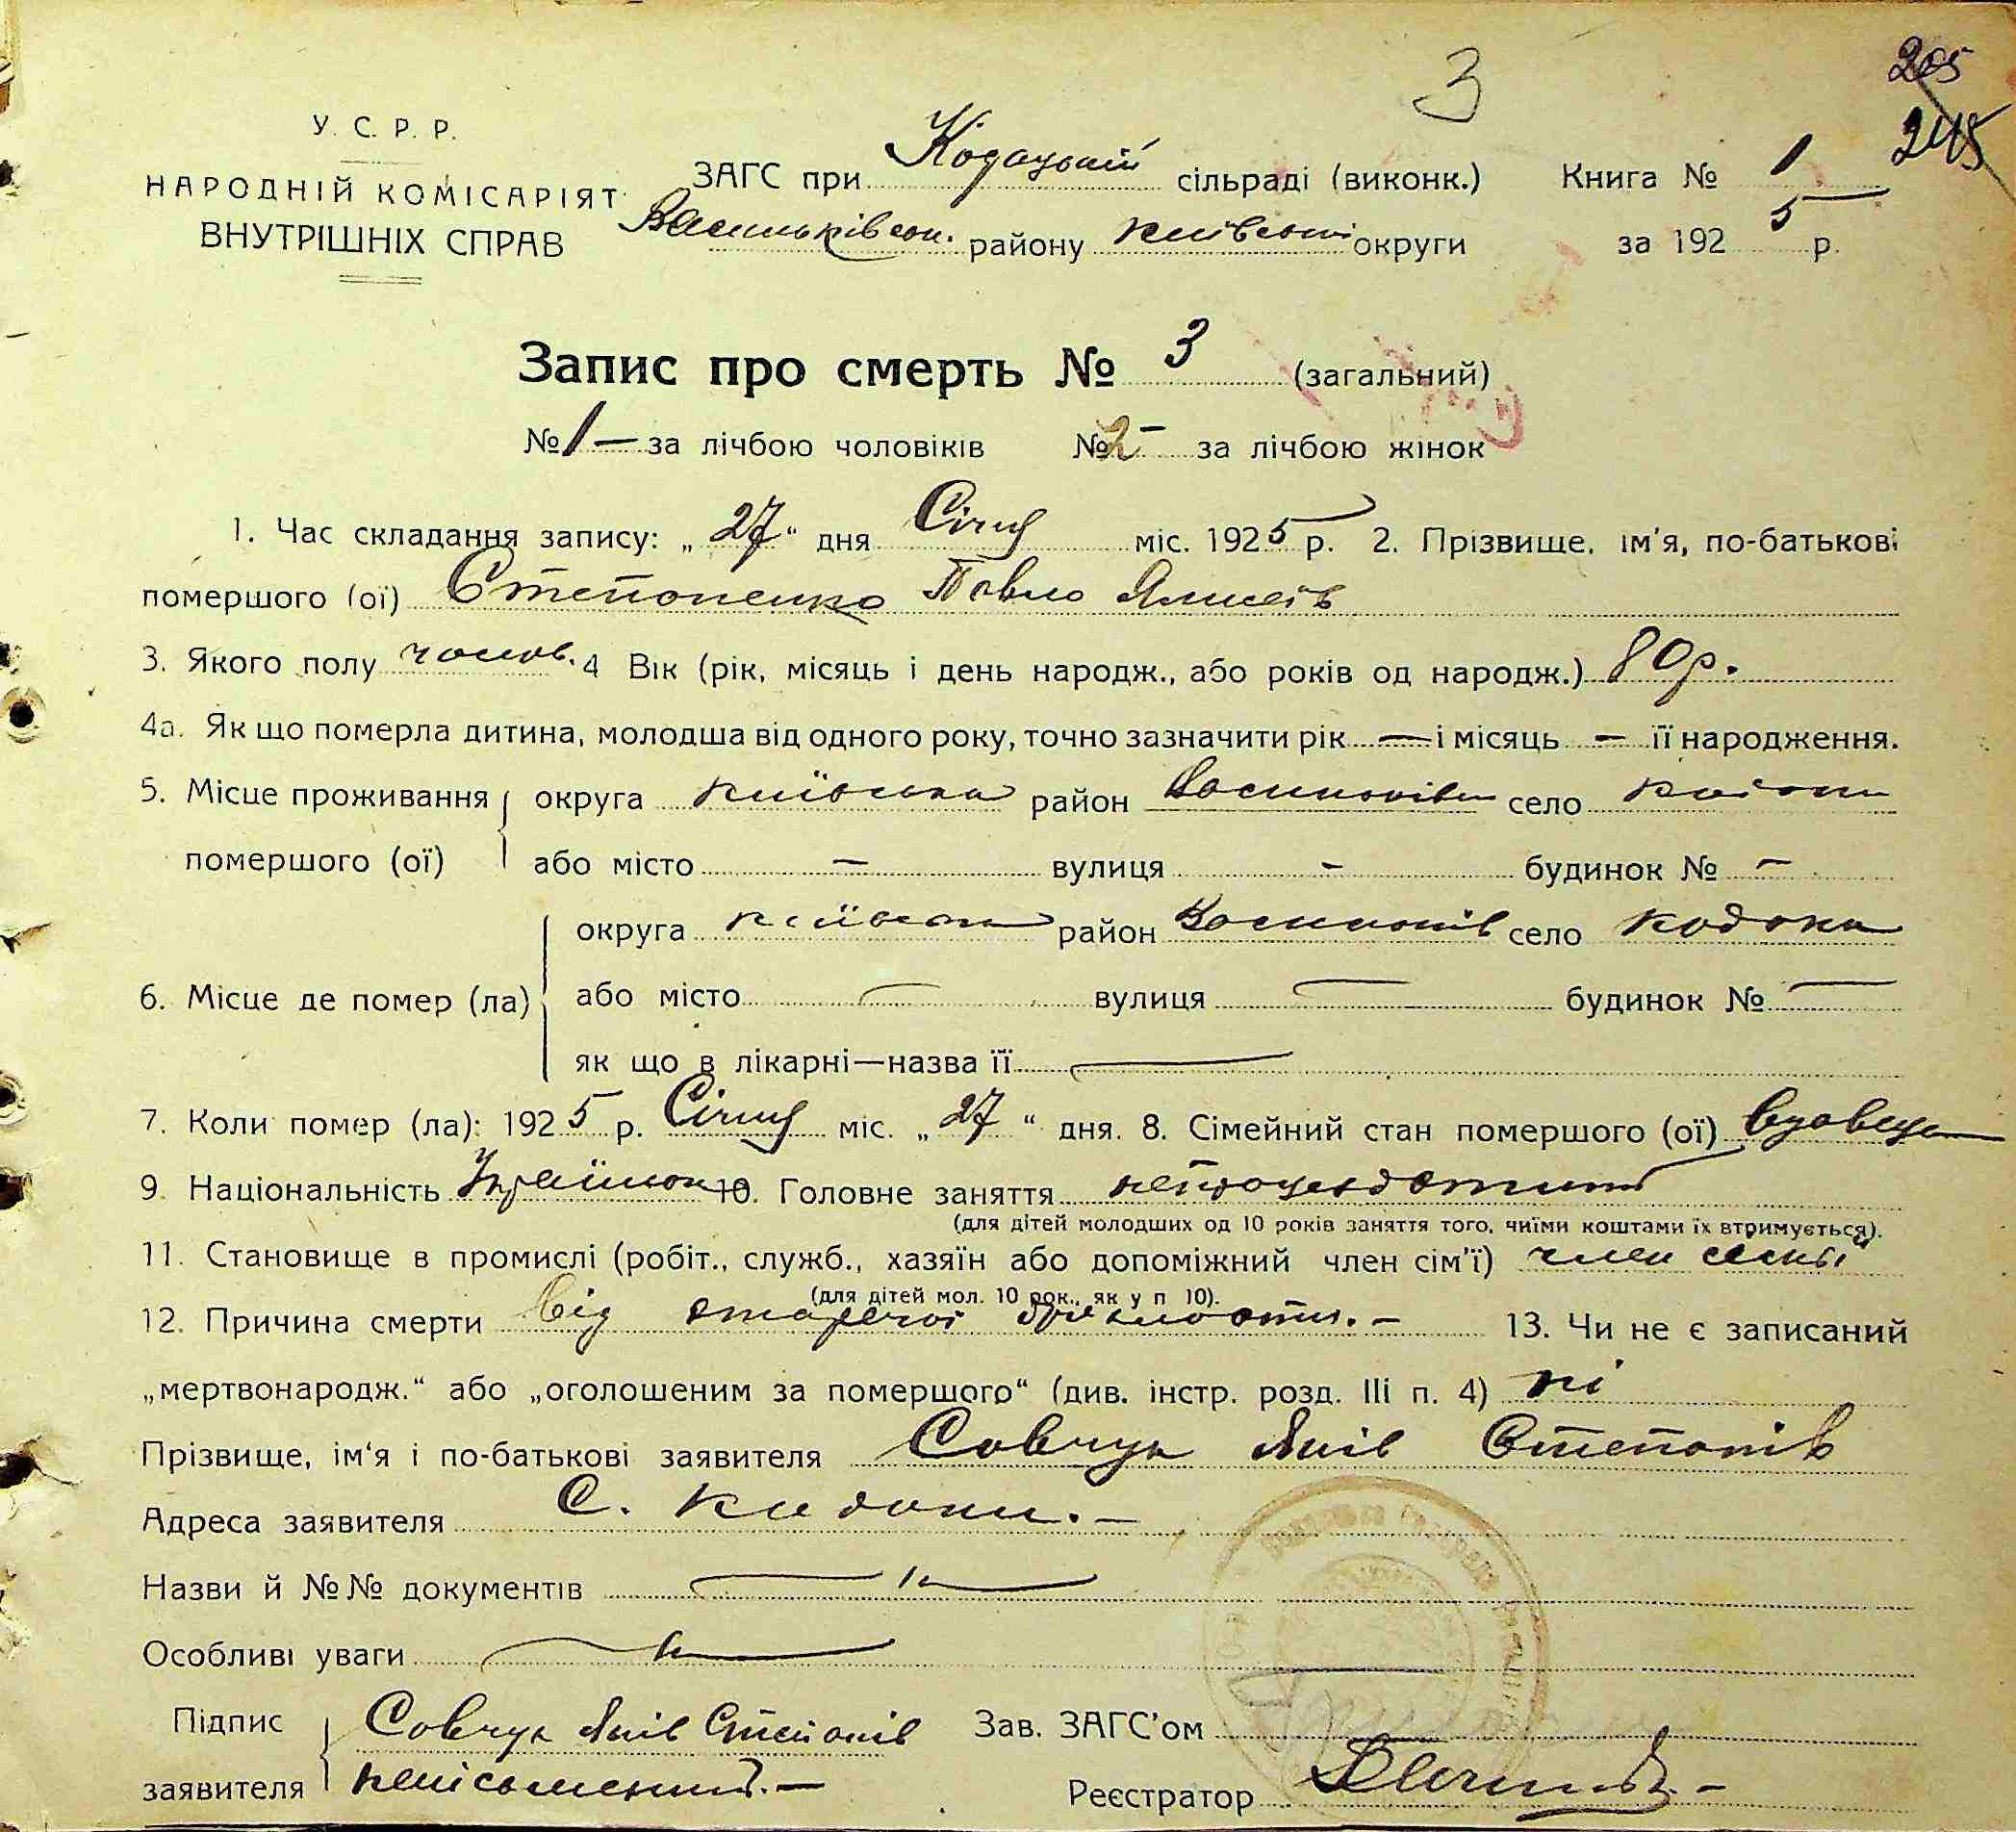 3
205
245
У. С. Р. Р.
НАРОДНІЙ КОМІСАРІЯТ
ВНУТРІШНІХ СПРАВ
ЗАГС при Кодацькій сільраді (виконк.)
Васильківськ. району Київської округи
Книга № 1
за 1925 р.
Запис про смерть № 3 (загальний)
№ 1 — за лічбою чоловіків № 2 - за лічбою жінок
1. Час складання запису: „27“ дня Січня міс. 1925 р. 2. Прізвище, ім'я, по-батькові
помершого (ої) Степоненко Павло
3. Якого полу чолов. 4 Вік (рік, місяць і день народж., або років од народж.) 80р.
4а. Як що померла дитина, молодша від одного року, точно зазначити рік — і місяць — її народження.
5. Місце проживання помершого (ої) округа Київська район Васильків село Кодаки
або місто — вулиця - будинок № —
6. Місце де помер (ла) округа Київська район Васильків село Кодаки
або місто — вулиця — будинок № —
як що в лікарні—назва її —
7. Коли помер (ла): 1925 р. Січня міс. „27“ дня. 8. Сімейний стан помершого (ої) вдовець
9. Національність Україн 10. Головне заняття
(для дітей молодших од 10 років заняття того, чиїми коштами їх втримується).
11. Становище в промислі (робіт., служб., хазяїн або допоміжний член сім'ї) член семьї
(для дітей мол. 10 рок., як у п 10).
12. Причина смерти від старечої дряхлости. — 13. Чи не є записаний
„мертвонародж.“ або „оголошеним за помершого“ (див. інстр. розд. III п. 4) ні
Прізвище, ім'я і по-батькові заявителя Совчук Яків Степонів
Адреса заявителя С. Кодаки. —
Назви й №№ документів —
Особливі уваги —
Підпис заявителя Совчук Яків Степонів
неписьменний. —
Зав. ЗАГС'ом
Реєстратор